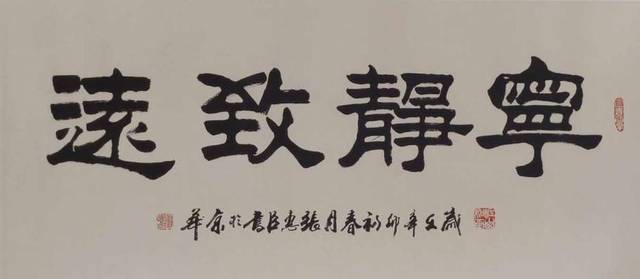 寧靜致遠
歲次辛卯初春月張書於京華